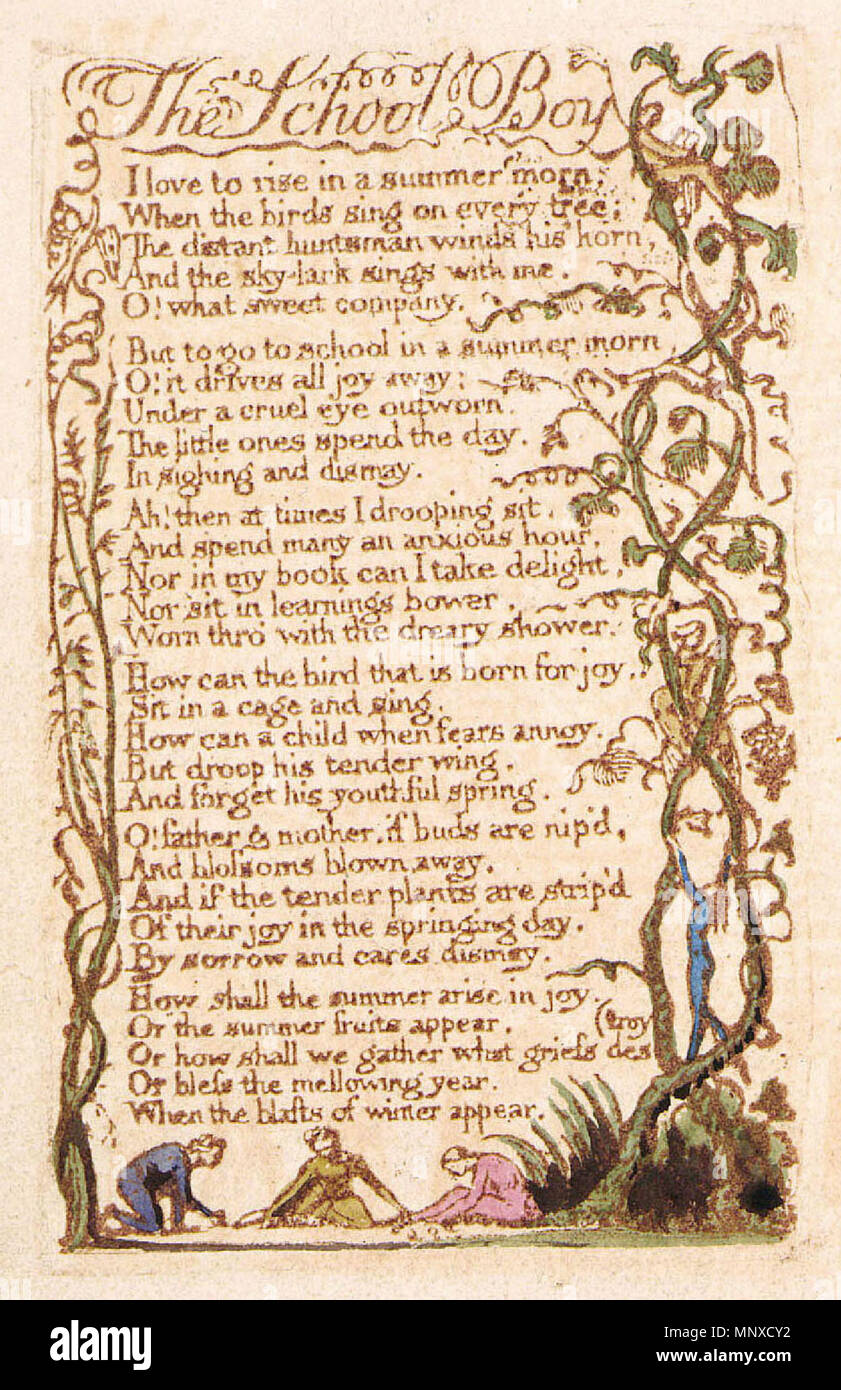 The School Boy
I love to rise in a summer morn,
When the birds sing on every tree;
The distant huntsman winds his horn,
And the sky-lark sings with me.
O! what sweet company.
But to go to school in a summer morn,
O! it drives all joy away;
Under a cruel eye outworn.
The little ones spend the day.
In sighing and dismay.
Ah! then at times I drooping sit.
And spend many an anxious hour.
Nor in my book can I take delight,
Nor sit in learnings bower,
Worn thro' with the dreary shower.
How can the bird that is born for joy.
Sit in a cage and sing.
How can a child when fears annoy.
But droop his tender wing.
And forget his youthful spring.
O! father & mother, if buds are nip'd,
And blofsoms blown away.
And if the tender plants are strip'd
Of their joy in the springing day.
By sorrow and cares dismay.
How shall the summer arise in joy.
Or the summer fruits appear.
(troy
Or how shall we gather what griefs des
Or blefs the mellowing year.
When the blasts of winter appear.
alamy
Image ID: MNXCY2
www.alamy.com